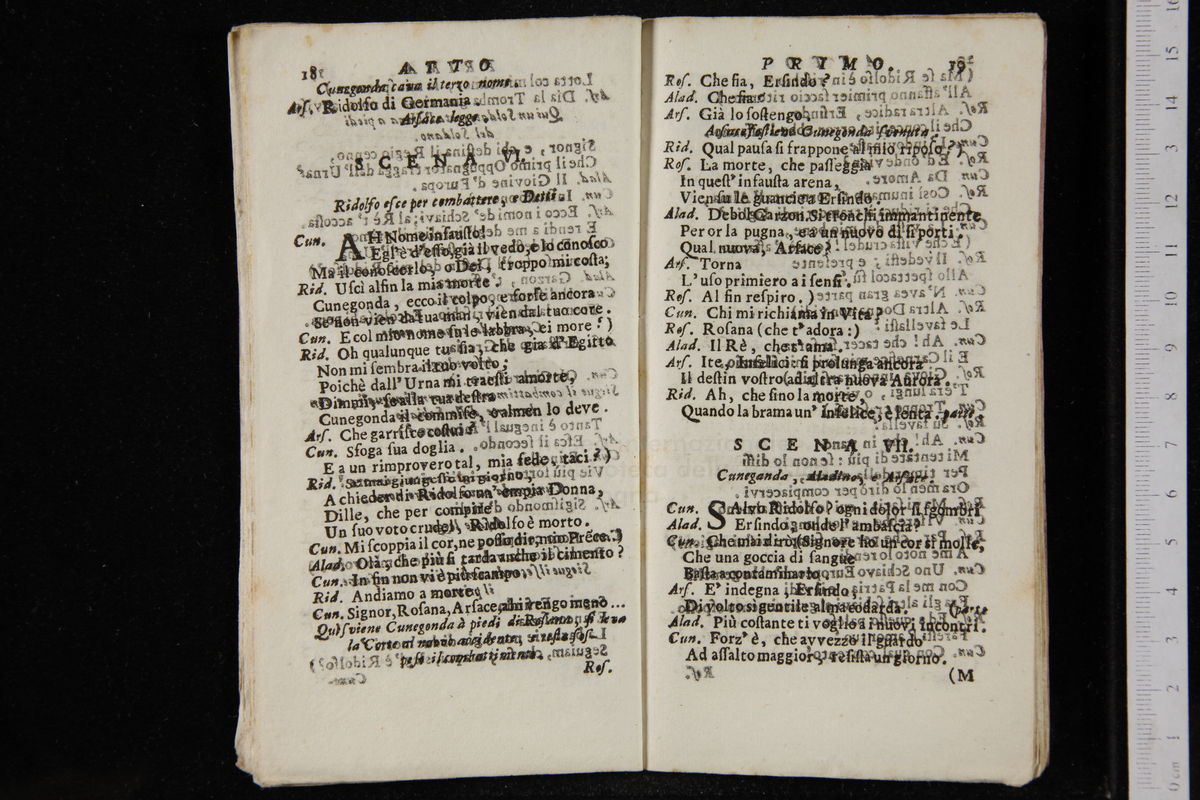 18
ATTO
Cunegonda cava il terzo nome.
Ars. Ridolfo di Germania.
Arsace legge
SCENA VI.
Ridolfo esce per combattere, e Detti.
Cun. AH Nome infausto!
Egl' è d'esso, già il vedo, e lo conosco
Ma il conoscerlo, o Dei, troppo mi costa;
Rid. Uscì alfin la mia morte
Cunegonda, ecco il colpo, e forse ancora
Se non vien da tua man, vien dal tuo core.
Cun. E col mio nome su le labbra, ei more!)
Rid. Oh qualunque tu sia, che già d'Egitto
Non mi sembra il tuo volto;
Poichè dall' Urna mi traesti a morte,
Dimmi, se alla tua destra
Cunegonda il commise, o almen lo deve.
Ars. Che garrisce costui?
Cun. Sfoga sua doglia.
E a un rimprovero tal, mia fede, taci?)
Rid. Se mai giungesse un giorno,
A chieder di Ridolfo un' empia Donna,
Dille, che per compire
Un suo voto crudel, Ridolfo è morto.
Cun. Mi scoppia il cor, ne posso dir,
Alad. Olà, che più si tarda anche il cimento?
Cun. In fin non vi è più scampo,
Rid. Andiamo a morte.
Cun. Signor, Rosana, Arsace, ahi vengo meno ...
Quì sviene Cunegonda à piedi di Rosana, si leva
la Corte al nuovo accidente, e resta sos-
peso il combattimento.
Ros.
PRIMO. 19
Ros. Che fia, Ersindo?
Alad. Che fia?
Ars. Già lo sostengo.
Arsace sostiene Cunegonda svenuta.
Rid. Qual pausa si frappone al mio riposo?)
Ros. La morte, che passeggia
In quest' infausta arena,
Vien su le guancie a Ersindo.
Alad. Debol Garzon. Si tronchi immantinente
Per or la pugna, e a un nuovo dì si porti.
Qual nuova, Arsace?
Ars. Torna
L'uso primiero a i sensi.
Ros. Al fin respiro.)
Cun. Chi mi richiama in Vita?
Ros. Rosana (che t'adora:)
Alad. Il Rè, che t'ama.
Ars. Ite, o Infelici: si prolunga ancora
Il destin vostro ad altra nuova Aurora.
Rid. Ah, che sino la morte,
Quando la brama un' infelice, è lenta. parte.
SCENA VII.
Cunegonda, Aladino, e Arsace.
Cun. SAlvo Ridolfo? ogni dolor si sgombri
Alad. Ersindo, onde l'ambascia?
Cun. Che mai dirò? (Signore ho un cor sì molle,
Che una goccia di sangue
Basta a contaminarlo.
Ars. E' indegna, Ersindo,
Di volto sì gentile alma codarda. (parte
Alad. Più costante ti voglio a i nuovi incontri.
Cun. Forz' è, che avvezzo il guardo
Ad assalto maggior, resista un giorno.
(M